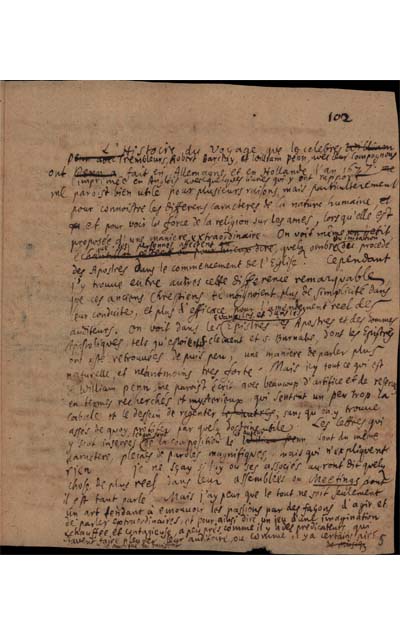 102
L'Histoire du voyage que le celebre William
Penn avec Trembleurs, Robert Barclay, et William Penn, avec leur compagnons
ont fait en Allemagne, et en Hollande l'an 1677
imprimée en Anglois avec quelques lettres qui y ont rapport
me paroist bien utile pour plusieurs raisons, mais particulierement
pour connoistre les differens caracteres de la nature humaine, et
et pour voir la force de la religion sur les ames, lorsqu'elle est
proposée d'une maniere extraordinaire. On voit même
quelque ombre du procedé
des Apostres dans le commencement de l'Eglise. Cependant
j'y trouve entre autres cette difference remarquable
que ces anciens Chrestiens temoignoient plus de simplicité dans
leur conduite, et plus d'efficace pour l'amendement reel des
auditeurs. On voit dans les Evangiles et dans les Epistres des Apostres et des hommes
Apostoliques tels qu'estoient S. Clement et S. Barnabe, dont les Epistres
ont esté retrouvées depuis peu, une maniere de parler plus
naturelle et neantmoins tres forte. Mais icy tout ce qui est
de William Penn me paroist ecrit avec beaucoup d'artifice et de
en termes recherchés et mysterieux qui sentent un peu trop la
cabale et le dessein de regenter sans qu'on y trouve
assez de quoy profiter par quelque doctrine utile. Les lettres qui
y sont inserées de la composition de Penn sont du même
caractere, pleines de paroles magnifiques, mais qui n'expliquent
rien. Je ne sçay s'il y ou ses associés auront dit quelque
chose de plus reel dans leur assemblées ou Meetings dont
il est tant parlé. Mais j'ay peur que le tout ne soit seulement
un art tendant à emouvoir les passions par des façons d'agir et
de parler extraordinaires, et pour ainsi dire un jeu d'une imagination
echauffée et contagieuse, à peu près comme il y a des predicateurs qui
sçavent faire pleurer leur auditoire, ou comme il y a certains airs
de musique
5